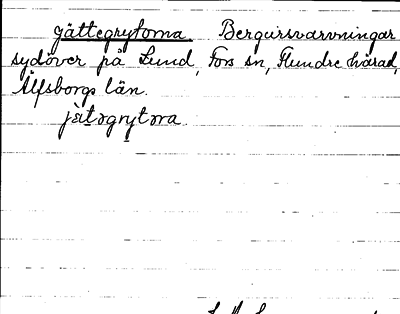 Jättegrytorna Bergursvarvningar
sydöver på Lund, Fors sn, Flundre härad,
Älfsborgs län.
jät̲ǝgryt̲ǝrna